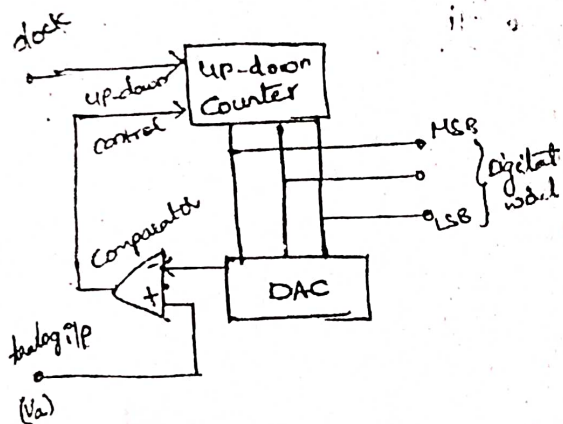 clock
up-down
Counter
up-down
control
MSB
Digital
word
LSB
Comparator
-
+
DAC
Analog i/p
(Va)